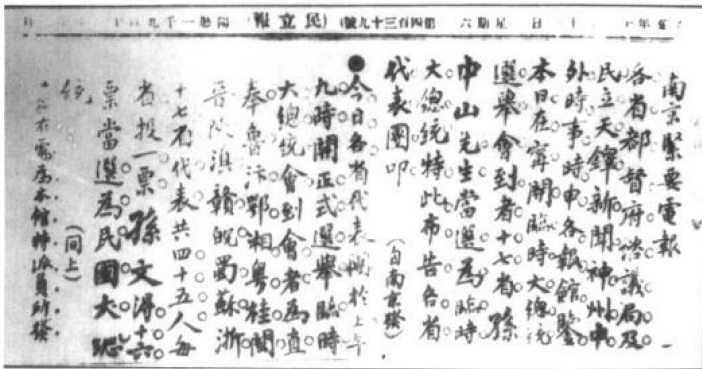 星期六 第四百三十九號 (民立報) 陽曆一千九百十
南京緊要電報
各省都督府諮議局及
民立天鐸新聞神州中
外時事時申各報館鑒
本日在寧開臨時大總統
選舉會到者十七省孫
中山先生當選為臨時
大總統特此布告各省
代表團叩 (自南京發)
●今日各省代表團於上午
九時開正式選舉臨時
大總統會到會者為直
奉魯汴鄂湘粵桂閩
晉陝滇贛皖蜀蘇浙
十七省代表共四十五人每
省投一票孫文得十六
票當選為民國大總
統 (同上)
右電為本館特派員所發